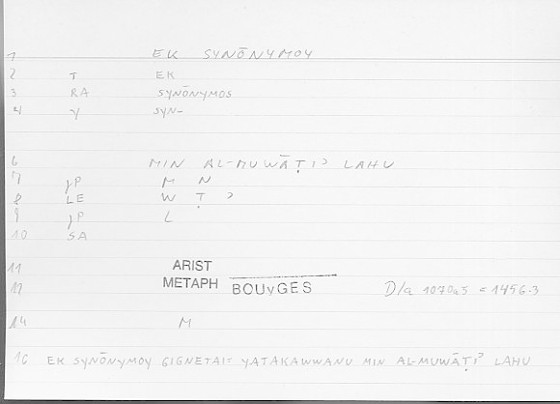 1 EK SYNŌNYMOY
2 T EK
3 RA SYNŌNYMOS
4 γ SYN-
6 MIN AL-MUWĀṬIʾ LAHU
7 γP M N
8 LE W Ṭ ʾ
9 γP L
10 SA
11 ARIST
12 METAPH BOUyGES D/a 1070a5 = 1456.3
14 M
16 EK SYNŌNYMOY GIGNETAI: YATAKAWWANU MIN AL-MUWĀṬIʾ LAHU